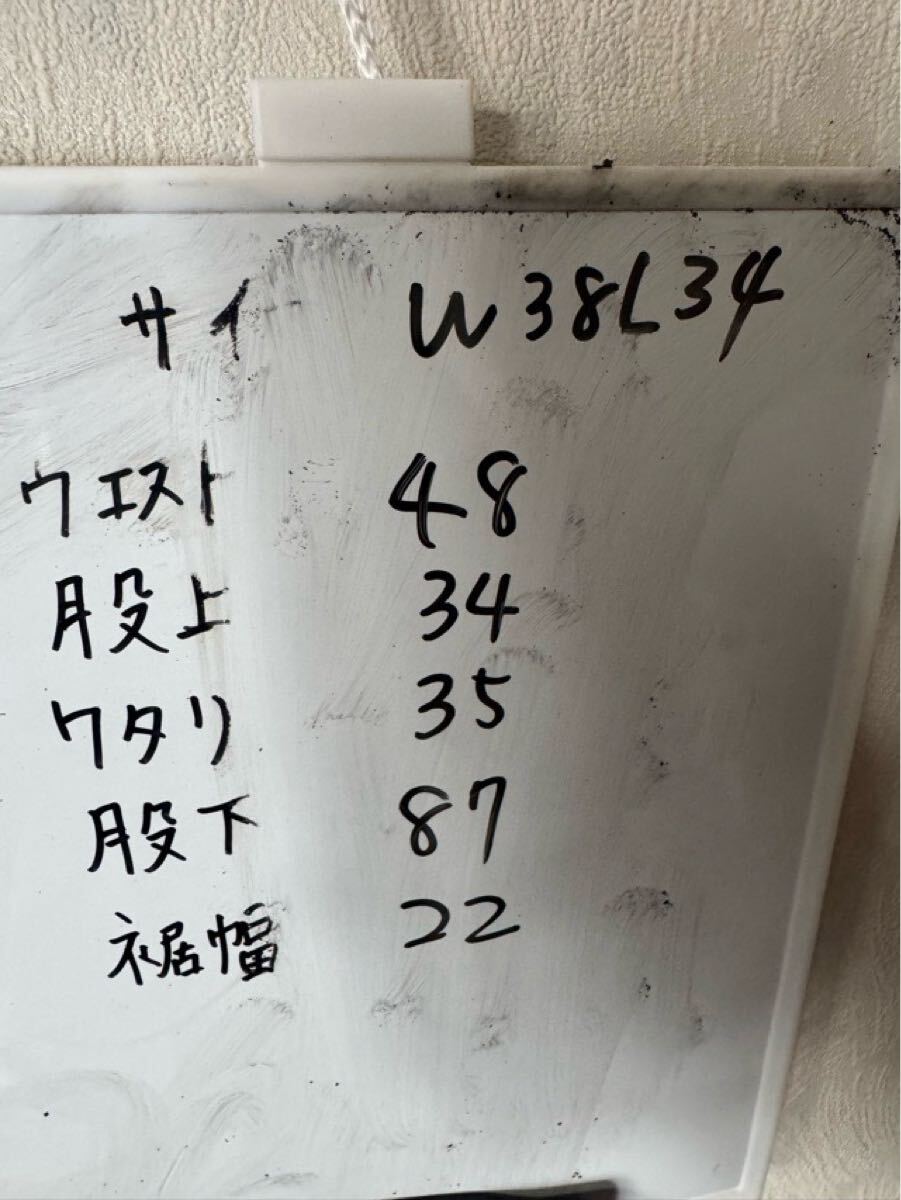 サイ W38L34
ウエスト 48
股上 34
ワタリ 35
股下 87
裾幅 22